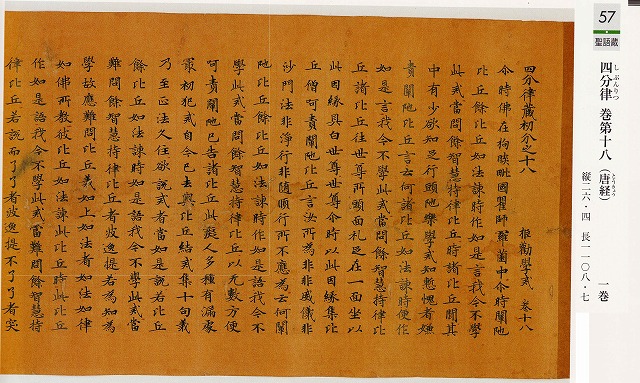 57
聖語蔵
四分律 巻第十八(唐経) 一巻
しぶんりつ
とうきょう
縦二六・四 長一一〇八・七
四分律藏初分之十八 拒勸學戒 卷十八
尒時佛在拘睒毗國瞿師羅薗中尒時闡陁
比丘餘比丘如法諫時作如是言我今不學
此戒當問餘智慧持律比丘時諸比丘聞其
中有少欲知足行頭陁樂學戒知慙愧者嫌
責闡陁比丘言云何諸比丘如法諫時便作
如是言我今不學此戒當問餘智慧持律比
丘諸比丘往世尊所頭面礼足在一面坐以
此因緣具白世尊世尊尒時以此因緣集比
丘僧呵責闡陁比丘言汝所為非非威儀非
沙門法非淨行非隨順行所不應為云何闡
陁比丘餘比丘如法諫時作如是語我今不
學此戒當問餘智慧持律比丘以无數方便
呵責闡陁已告諸比丘此癡人多種有漏處
冣初犯戒自今已去與比丘結戒集十句義
乃至正法久住欲說戒者當如是說若比丘
餘比丘如法諫時如是語我今不學此戒當
難問餘智慧持律比丘者波逸提若為知為
學故應難問比丘義如上如法者如法如律
如佛所教彼比丘如法諫此比丘時此比丘
作如是語我今不學此戒當難問餘智慧持
律比丘若說而了了者波逸提不了了者突